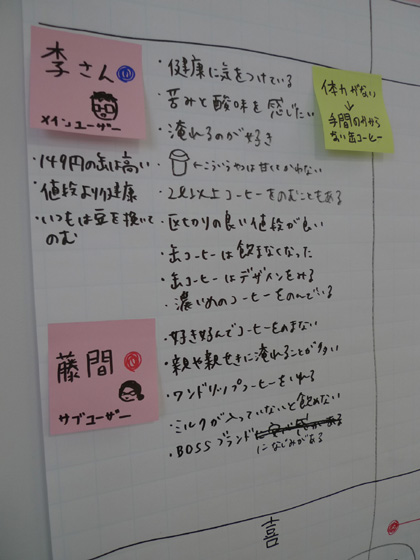 李さん
メインユーザー
・149円の缶は高い
・値段より健康
・いつもは豆を挽いて
のむ
・健康に気をつけている
・苦みと酸味を感じたい
・淹れるのが好き
・←こういうやつは甘いしかわない
・2杯以上コーヒーをのむこともある
・区切りの良い値段が良い
・缶コーヒーは飲まなくなった
・缶コーヒーはデザインをみる
・濃いめのコーヒーをのんでいる
体力がない
↓
手間のかから
ない缶コーヒー
藤間
サブユーザー
・好き好んでコーヒーをのまない
・親や親せきに淹れることが多い
・ワンドリップコーヒーをいれる
・ミルクが入っていないと飲めない
・BOSSブランド
になじみがある
喜